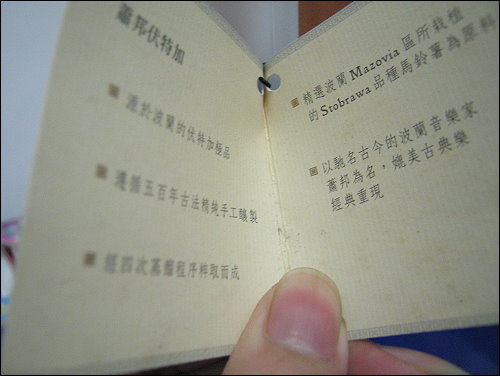 蕭邦伏特加
源於波蘭的伏特加極品
遵循五百年古法精純手工釀製
經四次蒸餾程序粹取而成
精選波蘭Mazovia區所栽植
的Stobrawa品種馬鈴薯為原料
以馳名古今的波蘭音樂家
蕭邦為名，媲美古典樂
經典重現